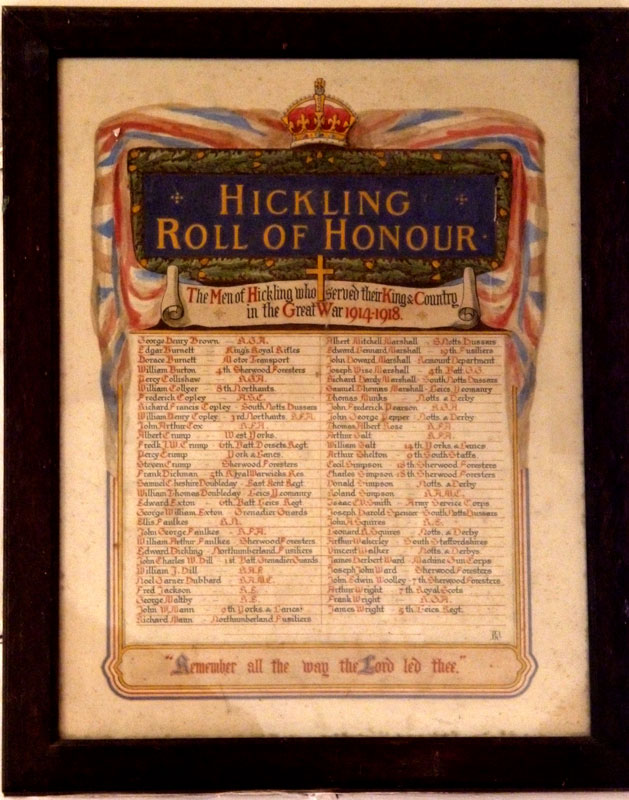 HICKLING
ROLL OF HONOUR
The Men of Hickling who served their King & Country
in the Great War 1914-1918.
George Henry Brown - R.G.A.
Edgar Burnett - King's Royal Rifles
Horace Burnett - Motor Transport
William Burton - 4th Sherwood Foresters
Percy Collishaw - R.G.A.
William Collyer - 8th Northants.
Frederick Copley - A.S.C.
Richard Francis Copley - South Notts Hussars
William Henry Copley - 3rd Northants. R.F.A.
John Arthur Cox - R.F.A.
Albert Crump - West Yorks.
Fredk J.W. Crump - 6th Batt. Dorsets Regt.
Percy Crump - York & Lancs.
Steven Crump - Sherwood Foresters
Frank Dickman - 5th Royal Warwicks Res.
Samuel Cheshire Doubleday - East Kent Regt.
William Thomas Doubleday - Leics Yeomanry
Edward Exton - 6th Batt Leics Regt
George William Exton - Grenadier Guards
Ellis Faulkes - R.N.
John George Faulkes - R.F.A.
William Arthur Faulkes - Sherwood Foresters
Edward Dickling - Northumberland Fusiliers
John Charles W. Hill 1st Batt Grenadier Guards
William J. Hill
Noel Garner Hubbard - R.A.M.C.
Fred Jackson - R.E.
George Maltby - R.E.
John W. Mann - 9th Yorks. & Lancs.
Richard Mann - Northumberland Fusiliers
Albert Mitchell Marshall - S. Notts Hussars
Edward Mennard Marshall - 19th Fusiliers
John Howard Marshall - Remount Department
Joseph Wise Marshall - 4th Batt. G.G.
Richard Hardy Marshall - South Notts Hussars
Samuel Thomas Marshall - Leics. Yeomanry
Thomas Munks - Notts & Derby
John Frederick Pearson - R.G.A.
John George Pepper - Notts. & Derby
Thomas Albert Rose - R.F.A.
Arthur Salt - R.F.A.
William Salt - 14th Yorks & Lancs
Arthur Shelton - 9th South Staffs
Cecil Simpson - 18th Sherwood Foresters
Charles Simpson - 18th Sherwood Foresters
Donald Simpson - Notts. & Derby
Roland Simpson - R.A.M.C.
Isaac W. Smith - Army Service Corps
Joseph Harold Spencer - South Notts Hussars
John A. Squires - R.E.
Leonard R. Squires - Notts. & Derby
Arthur Wakerley - South Staffordshires
Vincent Walker - Notts. & Derbys
James Herbert Ward - Machine Gun Corps
Joseph John Ward - Sherwood Foresters
John Edwin Woolley - 7th Sherwood Foresters
Arthur Wright - 7th Royal Scots
Frank Wright - R.G.A.
James Wright - 5th Leics. Regt.
"Remember all the way the Lord led thee."